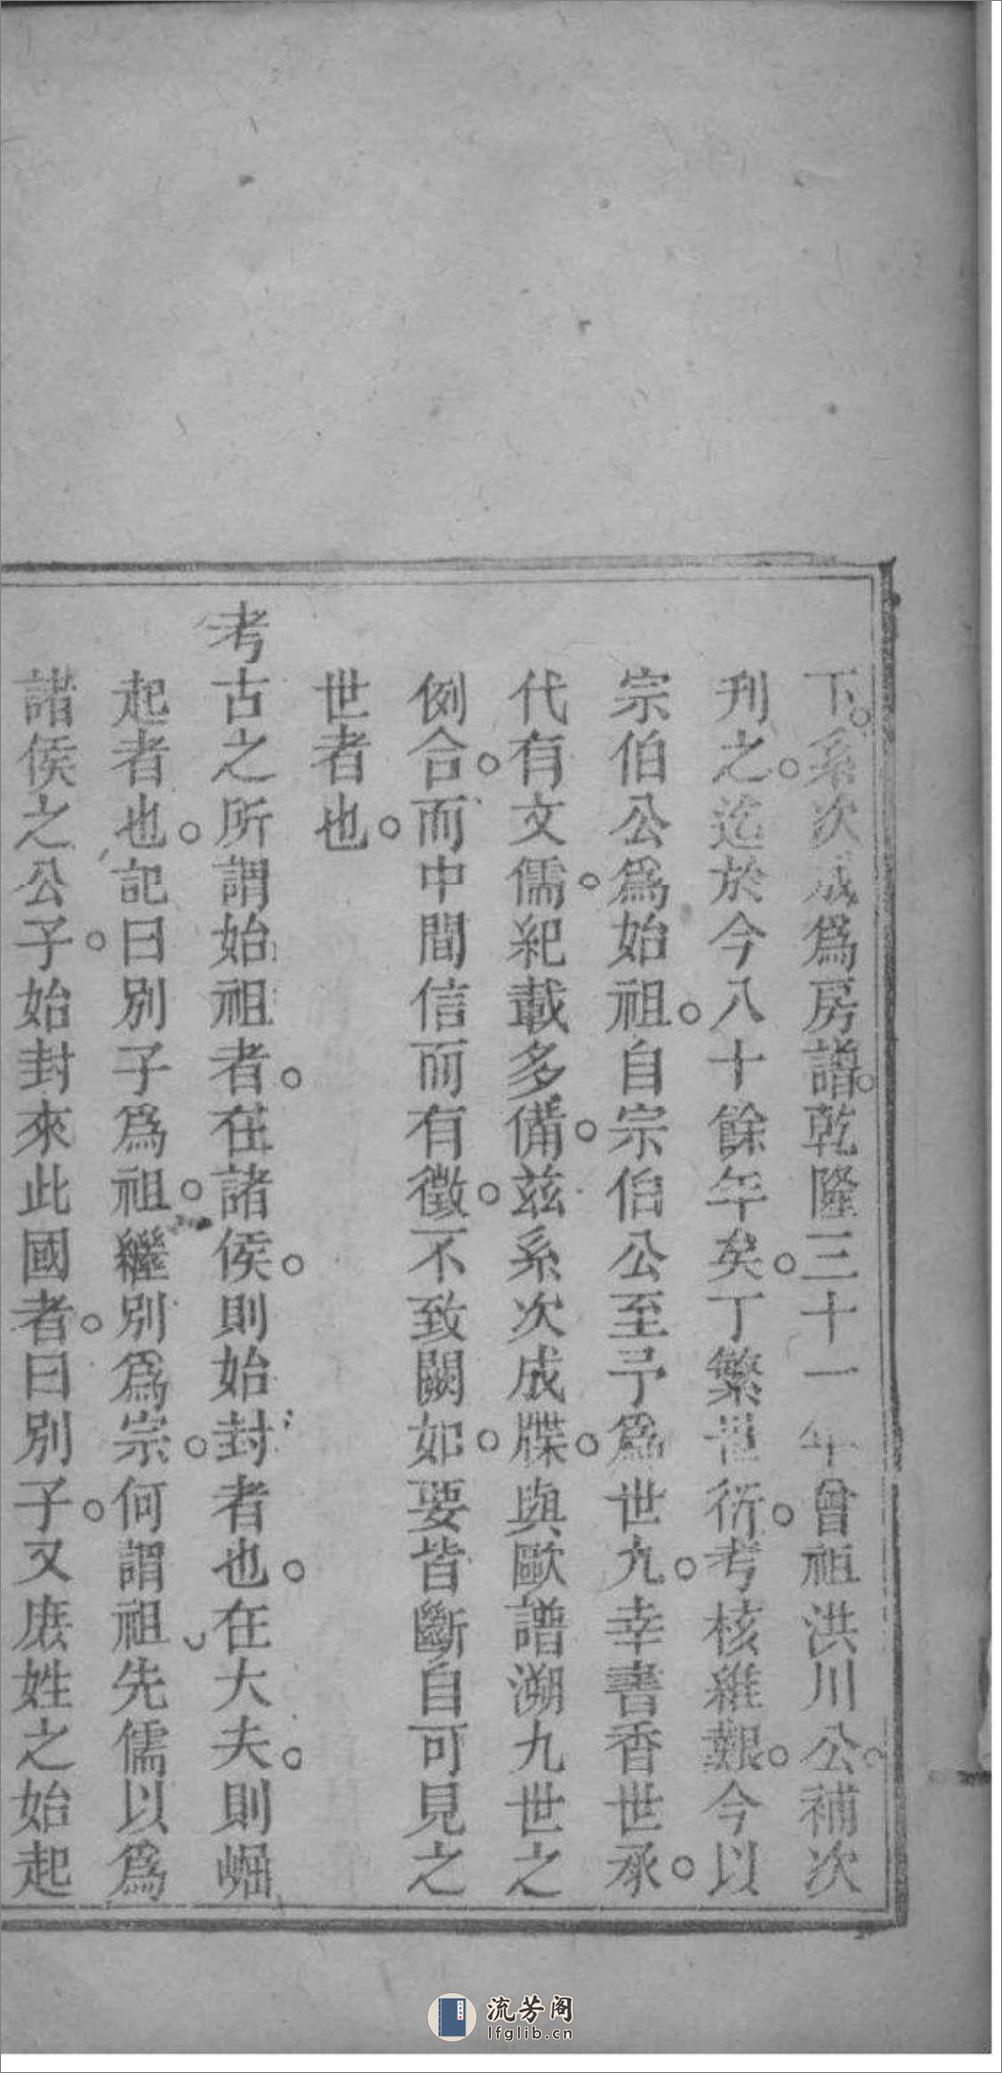 下。系次成爲房譜。乾隆三十一年曾祖洪川公。補次
刋之。迄於今八十餘年矣。丁繁世衍。考核維艱。今以
宗伯公爲始祖。自宗伯公至予爲世九。幸書香世承。
代有文儒。紀載多備。兹系次成牒。與歐譜溯九世之
例合。而中間信而有徵。不致闕如。要皆斷自可見之
世者也。
考古之所謂始祖者。在諸侯。則始封者也。在大夫。則崛
起者也。記曰別子爲祖。繼別爲宗。何謂祖先儒以爲
諸侯之公子。始封來此國者。曰別子。又庶姓之始起
流芳阁
lfglib.cn